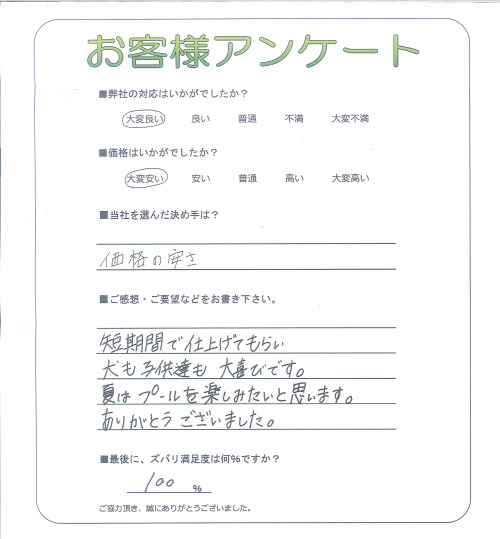 お客様アンケート
■弊社の対応はいかがでしたか？
大変良い 良い 普通 不満 大変不満
■価格はいかがでしたか？
大変安い 安い 普通 高い 大変高い
■当社を選んだ決め手は？
価格の安さ
■ご感想・ご要望などをお書き下さい。
短期間で仕上げてもらい
犬も子供達も大喜びです。
夏はプールを楽しみたいと思います。
ありがとうございました。
■最後に、ズバリ満足度は何%ですか？
100 %
ご協力頂き、誠にありがとうございました。